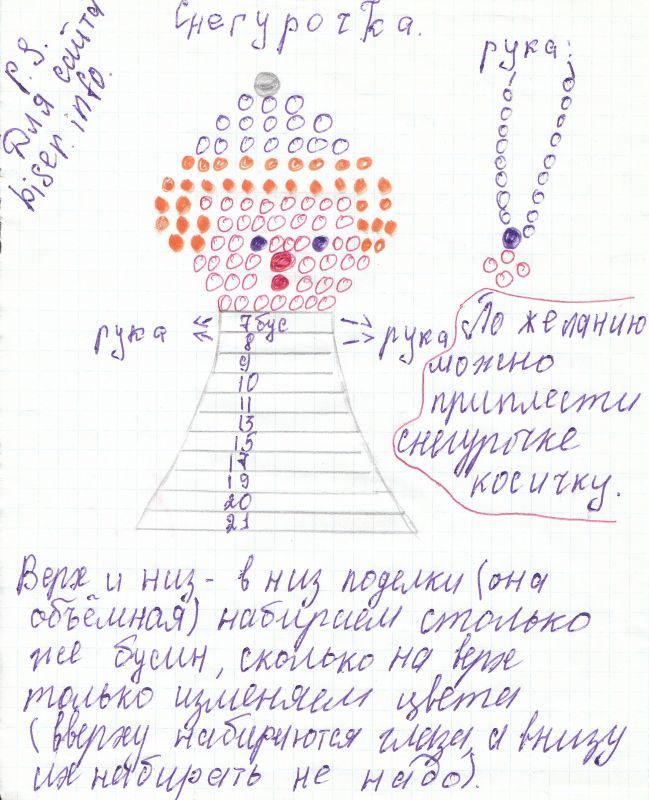 Снегурочка.
P.S.
Для сайта
biser.info.
рука:
рука
7 бус
8
9
10
11
13
15
17
19
20
21
рука
По желанию
можно
приплести
снегурочке
косичку.
Верх и низ - в низ поделки (она
объёмная) набираем столько
же бусин, сколько на верх
только изменяем цвета
(вверху набираются глаза, а внизу
их набирать не надо).